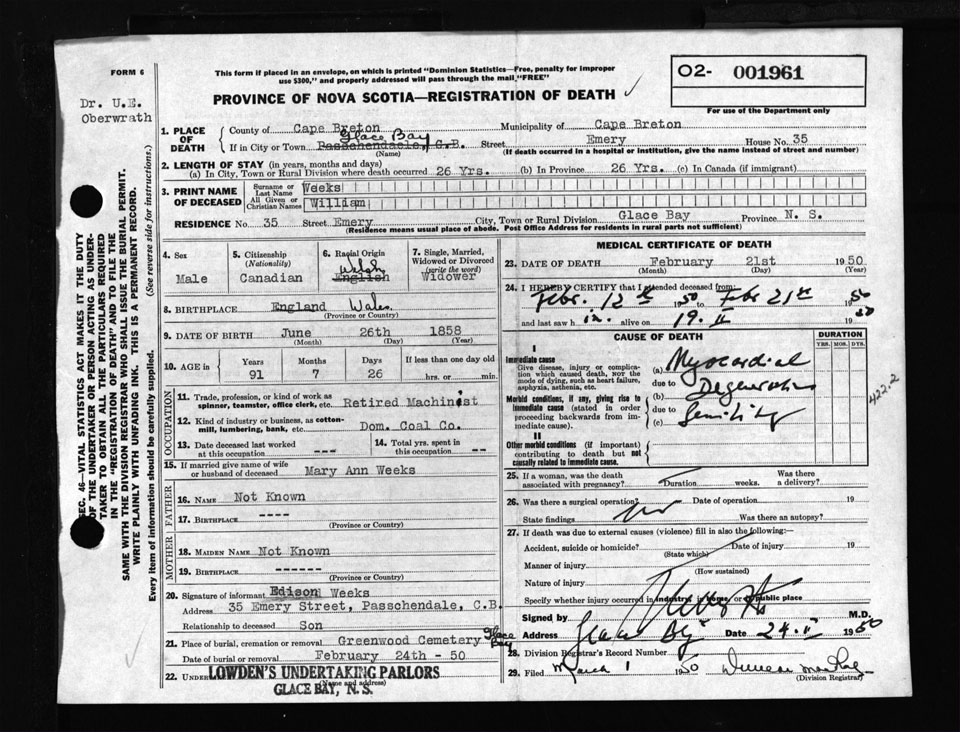 FORM 6
Dr. U.E.
Oberwrath
This form if placed in an envelope, on which is printed "Dominion Statistics—Free, penalty for improper
use $300," and properly addressed will pass through the mail "FREE"
O2- 001961
For use of the Department only
PROVINCE OF NOVA SCOTIA—REGISTRATION OF DEATH
1. PLACE OF DEATH
County of Cape Breton Municipality of Cape Breton
Glace Bay
If in City or Town Passchendaele, C.B. Street Emery House No. 35
(Name) (If death occurred in a hospital or institution, give the name instead of street and number)
2. LENGTH OF STAY (in years, months and days)
(a) In City, Town or Rural Division where death occurred 26 Yrs. (b) In Province 26 Yrs. (c) In Canada (if immigrant)
3. PRINT NAME OF DECEASED
Surname or Last Name Weeks
All Given or Christian Names William
RESIDENCE No. 35 Street Emery City, Town or Rural Division Glace Bay Province N. S.
(Residence means usual place of abode. Post Office Address for residents in rural parts not sufficient)
4. Sex
Male
5. Citizenship
(Nationality)
Canadian
6. Racial Origin
Welsh
English
7. Single, Married, Widowed or Divorced
(write the word)
Widower
8. BIRTHPLACE England Wales
(Province or Country)
9. DATE OF BIRTH June 26th 1858
(Month) (Day) (Year)
10. AGE in
Years Months Days If less than one day old
91 7 26 hrs. or min.
OCCUPATION
11. Trade, profession, or kind of work as
spinner, teamster, office clerk, etc. Retired Machinist
12. Kind of industry or business, as cotton-
mill, lumbering, bank, etc. Dom. Coal Co.
13. Date deceased last worked
at this occupation ---
14. Total yrs. spent in
this occupation --
15. If married give name of wife
or husband of deceased Mary Ann Weeks
FATHER
16. NAME Not Known
17. BIRTHPLACE ----
(Province or Country)
MOTHER
18. MAIDEN NAME Not Known
19. BIRTHPLACE ------
(Province or Country)
20. Signature of informant Edison Weeks
Address 35 Emery Street, Passchendale, C.B.
Relationship to deceased Son
21. Place of burial, cremation or removal Greenwood Cemetery Glace Bay
Date of burial or removal February 24th - 50
22. UNDER
LOWDEN'S UNDERTAKING PARLORS
(Name and address)
GLACE BAY, N. S.
MEDICAL CERTIFICATE OF DEATH
23. DATE OF DEATH February 21st 1950
(Month) (Day)
24. I HEREBY CERTIFY that I attended deceased from
Febr. 12th 50 to Febr 21st 1950
and last saw h im. alive on 19. II 1950
CAUSE OF DEATH
DURATION
YRS. MOS. DYS.
I
Immediate cause
Give disease, injury or complica-
tion which caused death, NOT the
mode of dying, such as heart failure,
asphyxia, asthenia, etc.
(a) Myocardial
due to
Morbid conditions, if any, giving rise to
immediate cause (stated in order
proceeding backwards from im-
mediate cause).
(b) Degeneration
due to
(c) Senility
422.2
II
Other morbid conditions (if important)
contributing to death but not
causally related to immediate cause.
25. If a woman, was the death
associated with pregnancy? Duration weeks. Was there
a delivery?
26. Was there a surgical operation? Date of operation 19
State findings no Was there an autopsy?
27. If death was due to external causes (violence) fill in also the following:
Accident, suicide or homicide? Date of injury 19
(State which)
Manner of injury
(How sustained)
Nature of injury
Specify whether injury occurred in industry, in home, or in public place
Signed by M.D.
Address Glace Bay Date 24. II 1950
28. Division Registrar's Record Number
29. Filed March 1 1950
(Division Registrar)
SEC. 46—VITAL STATISTICS ACT MAKES IT THE DUTY
OF THE UNDERTAKER OR PERSON ACTING AS UNDER-
TAKER TO OBTAIN ALL THE PARTICULARS REQUIRED
IN THE "REGISTRATION OF DEATH" AND TO FILE THE
SAME WITH THE DIVISION REGISTRAR WHO SHALL ISSUE THE BURIAL PERMIT.
WRITE PLAINLY WITH UNFADING INK. THIS IS A PERMANENT RECORD.
Every item of information should be carefully supplied. (See reverse side for instructions.)